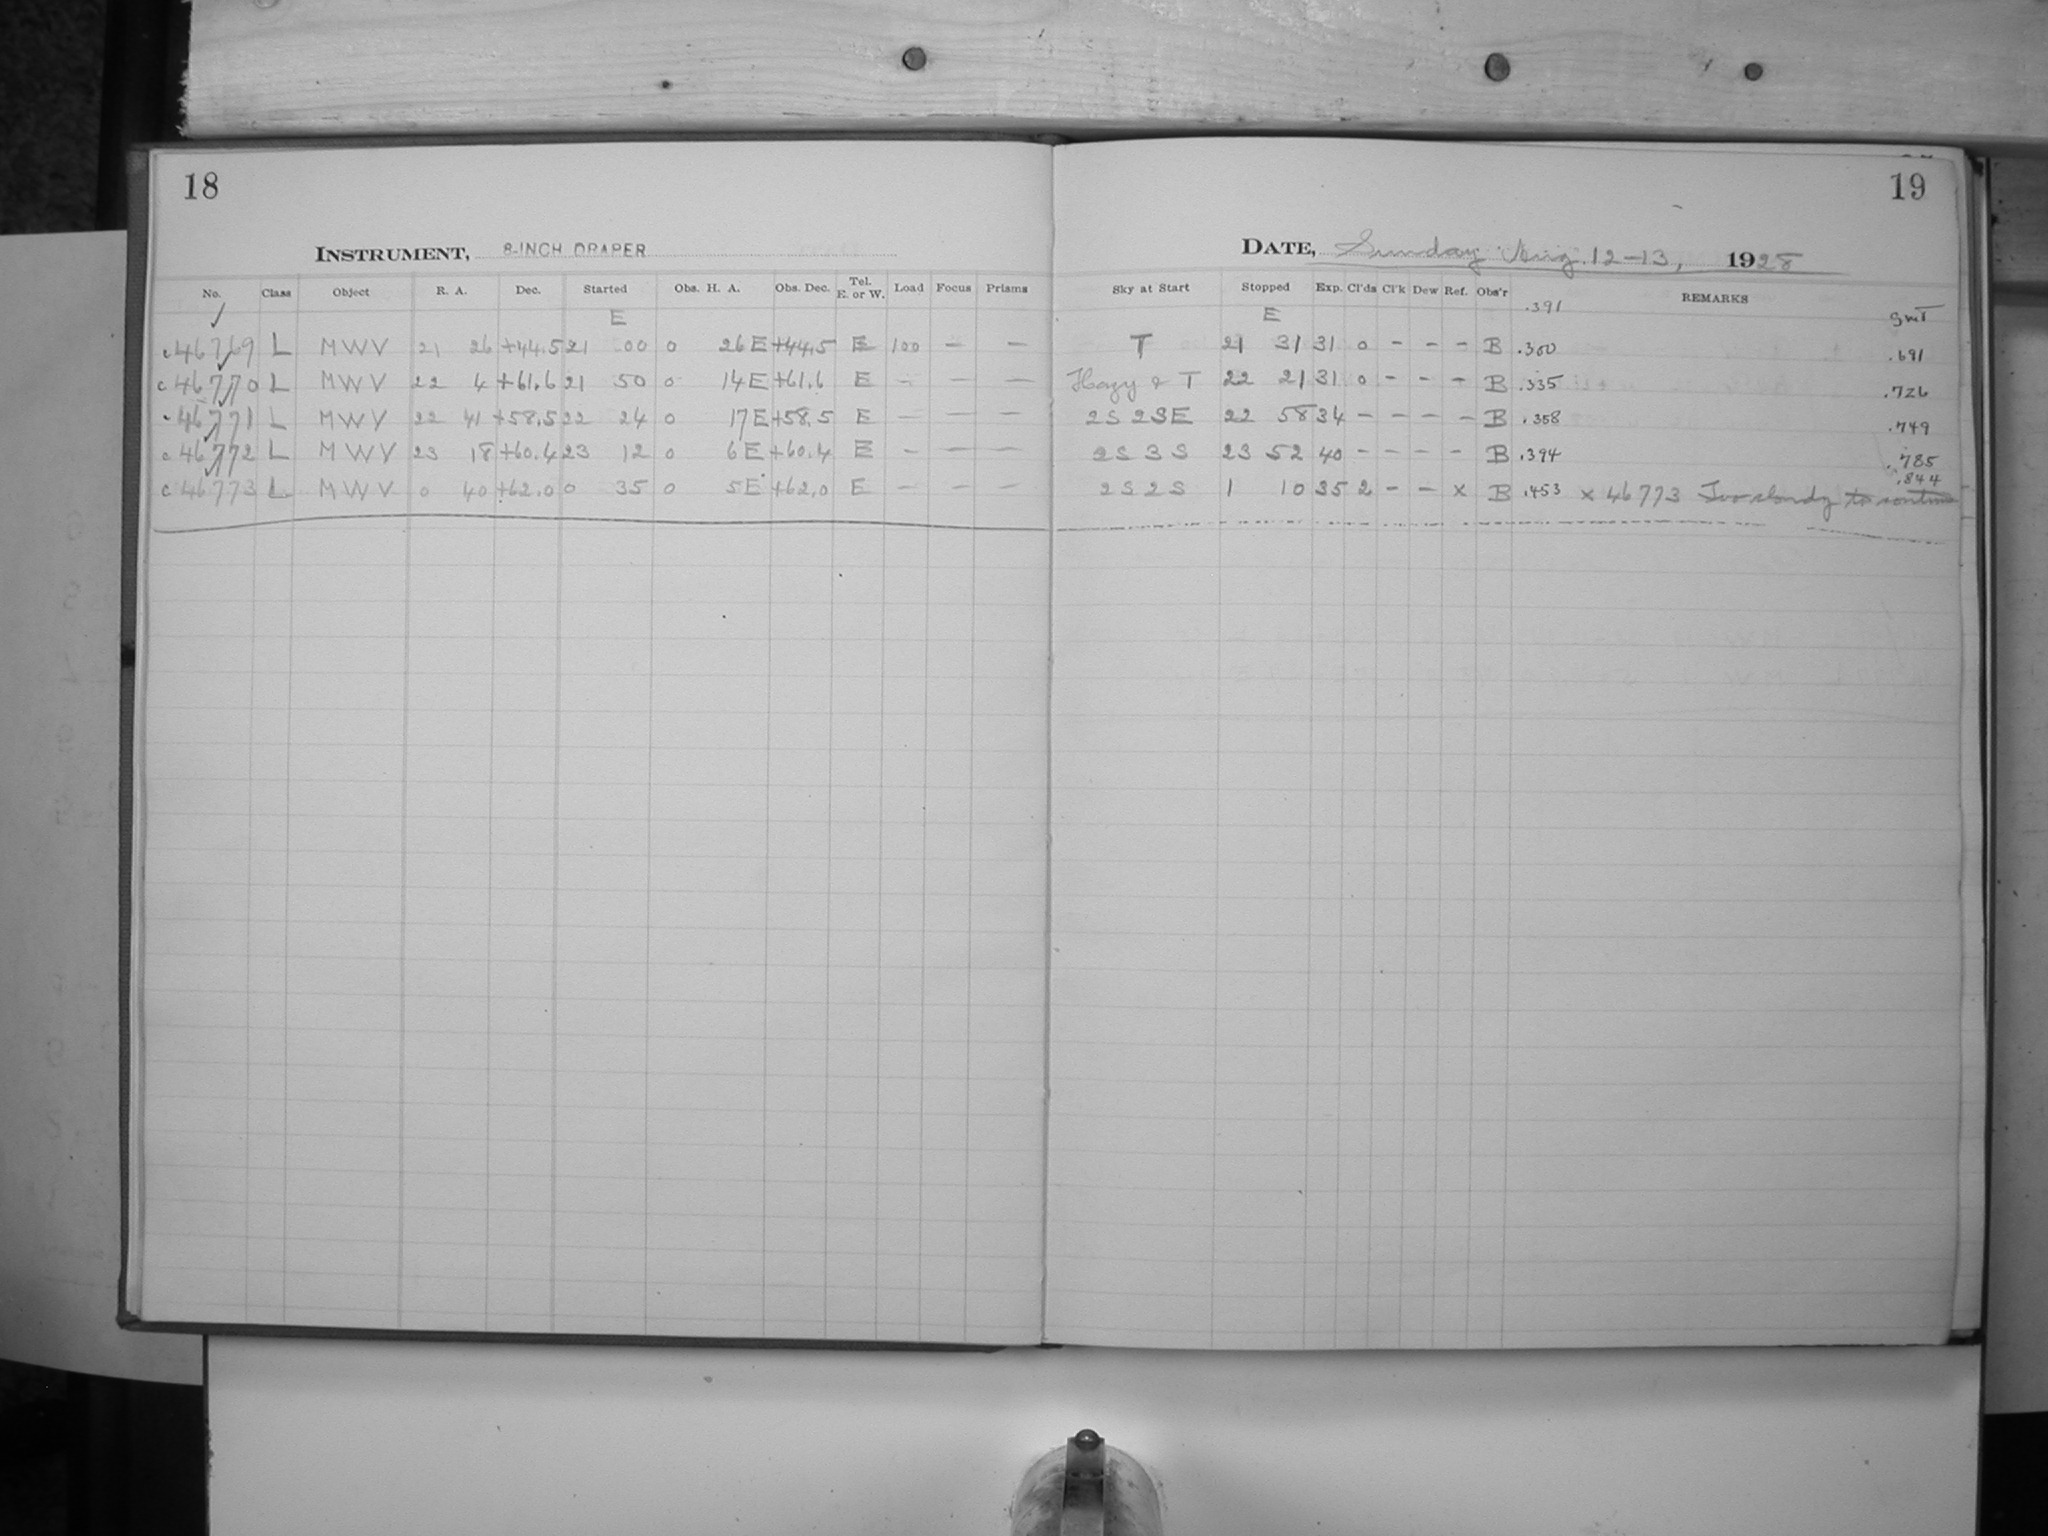 18
INSTRUMENT, 8-INCH DRAPER
No. Class Object R. A. Dec. Started Obs. H. A. Obs. Dec. Tel. E. or W. Load Focus Prisms
E
c46769 L MWV 21 26 +44.5 21 00 0 26E +44.5 E 100 — —
c46770 L MWV 22 4 +61.6 21 50 0 14E +61.6 E — — —
c46771 L MWV 22 41 +58.5 22 24 0 17E +58.5 E — — —
c46772 L MWV 23 18 +60.4 23 12 0 6E +60.4 E — — —
c46773 L MWV 0 40 +62.0 0 35 0 5E +62.0 E — — —
19
DATE, Sunday Aug. 12-13, 1928
Sky at Start Stopped Exp. Cl'ds Cl'k Dew Ref. Obs'r REMARKS
E .391 GMT
T 21 31 31 0 - - - B .300 .691
Hazy & T 22 21 31 0 - - - B .335 .726
2S 2SE 22 58 34 - - - - B .358 .749
2S 3S 23 52 40 - - - - B .394 .785
2S 2S 1 10 35 2 - - x B .453 x 46773 Too cloudy to continue .844